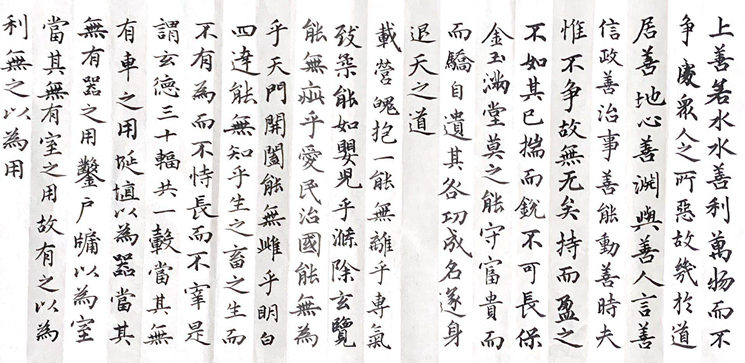 上善若水水善利萬物而不
争處衆人之所惡故幾於道
居善地心善渊與善人言善
信政善治事善能動善時夫
惟不争故無尤矣持而盈之
不如其已揣而銳不可長保
金玉滿堂莫之能守富貴而
而驕自遺其各功成名遂身
退天之道
載營魄抱一能無離乎專氣
致柔能如嬰児乎滌除玄覽
能無疵乎愛民治國能無為
乎天門開闔能無雌乎明白
四達能無知乎生之畜之生而
不有為而不恃長而不宰是
謂玄德三十輻共一轂當其無
有車之用埏埴以為器當其
無有器之用鑿户牖以為室
當其無有室之用故有之以為
利無之以為用